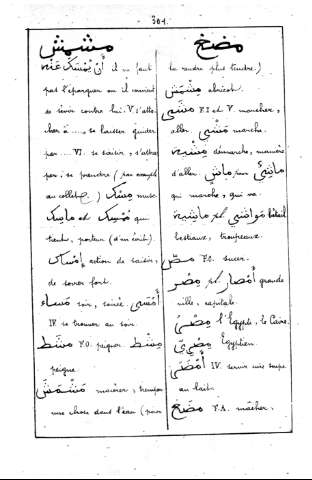 304.
مشمش
أَنْ يُمْسَك عَنْهُ il ne faut
pas l'épargner on il convient
de sévir contre lui. V s'atta-
cher à ..., se laisser guider
par ... VI. se saisir, s'attra-
per; se prendre (par exemple
au collet) مِسْك musc
مُمْسِك et ماسِك qui
tient, porteur (d'un écrit).
إمْساك action de saisir,
de serrer fort.
مَساء soir, soirée. أَمْسَى
IV. se trouver au soir
مَشَط F.O. peigner مِشْط
peigne
مَشْمَشَ macérer, tremper
une chose dans l'eau (pour
مضغ
la rendre plus tendre.)
مِشْمِش abricot.
مَشَى F.I et V. marcher,
aller. مَشْي marche.
مِشْيَة démarche, manière
d'aller ماشٍ pour ماشِيٌ
qui marche, qui va.
ماشِيَة pl. مَوَاشِي bétail
bestiaux, troupeaux.
مصّ F.O. sucer.
مِصْر pl. أَمْصار grande
ville, capitale
مِصْرُ l'Égypte, le Caire.
مِصْرِيّ Égyptien.
أَمْضَى IV. servir une soupe
au lait.
مَضَغ F.A. mâcher.